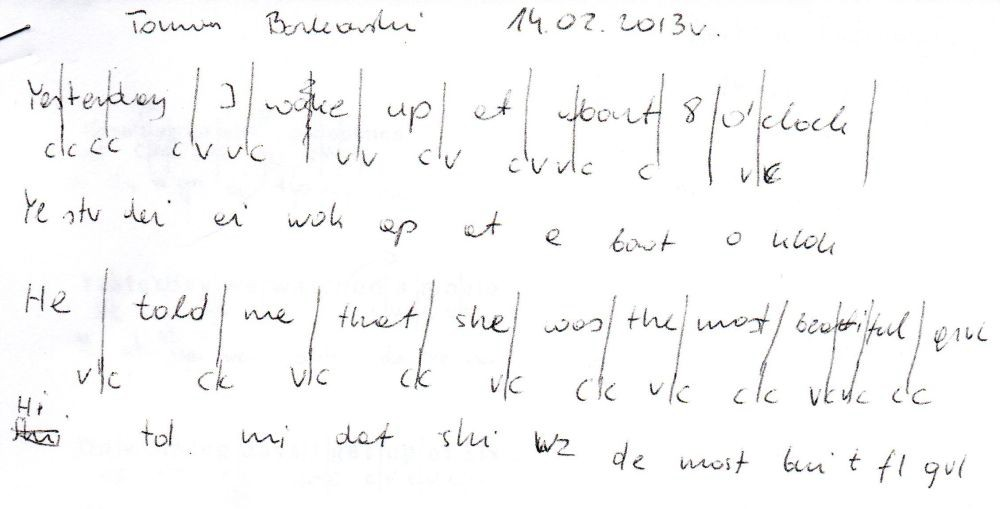 Tomasz Borkowski 14.02.2013r.
Yes|ter|day | I | woke | up | at | about | 8 | o'|clock |
c|c c|c c|v v|c | v|v c|v c|v v|c c | v|c
Ye stv dei ei wok ap at e bout o klok
He | told | me | that | she | was | the | most | beau|ti|ful | girl
v|c c|c v|c c|c v|c c|c v|c c|c v|c v|c c|c
Hi
told mi dat shi wz de most bui t fl gvl